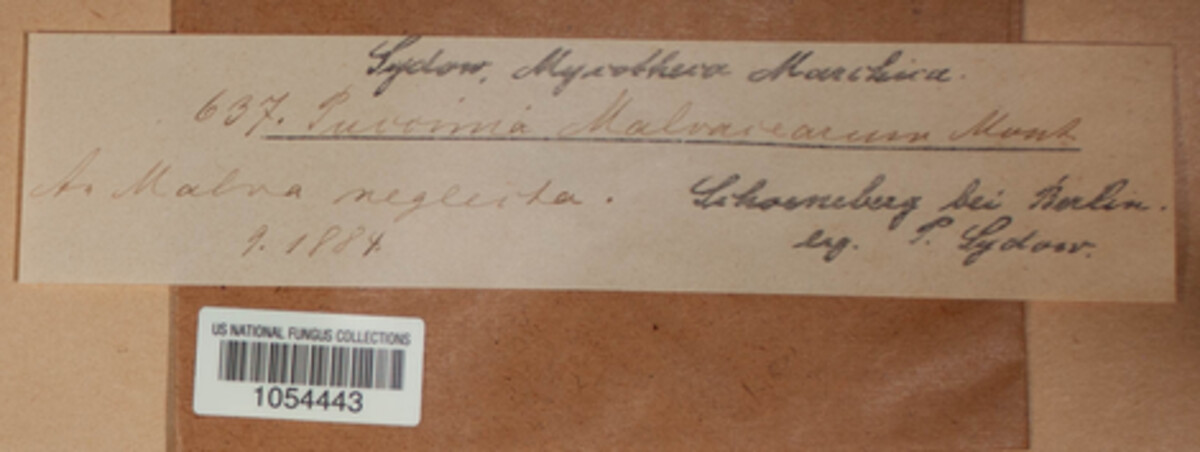 Sydow, Mycotheca Marchica.
637. Puccinia Malvacearum Mont.
An Malva neglecta.
9. 1884.
Schoeneberg bei Berlin.
leg. P. Sydow.
US NATIONAL FUNGUS COLLECTIONS
1054443